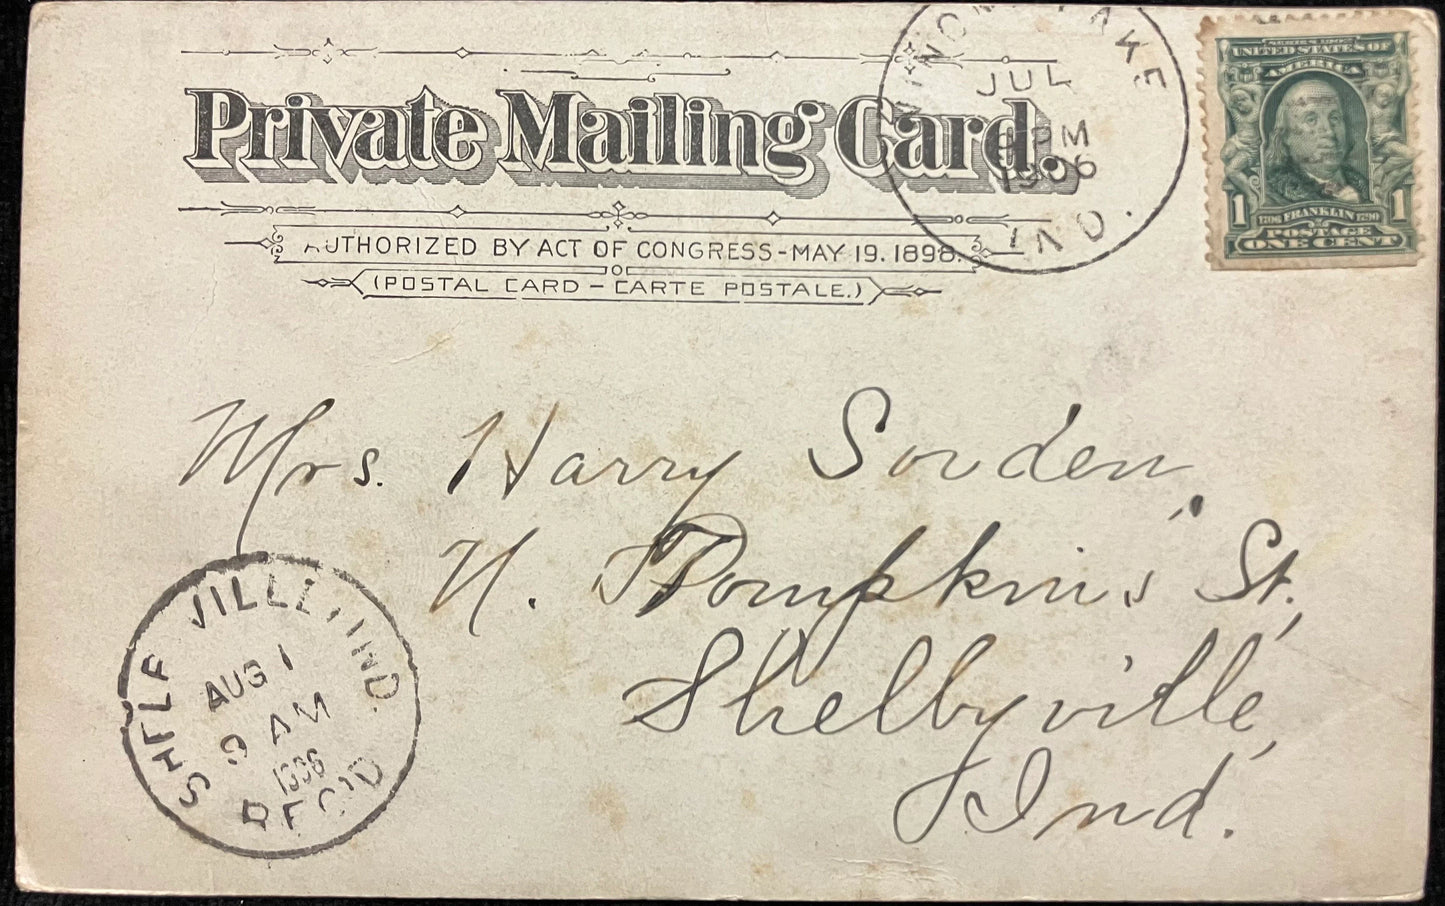 Private Mailing Card.
AUTHORIZED BY ACT OF CONGRESS-MAY 19. 1898.
(POSTAL CARD - CARTE POSTALE.)
WINONA LAKE
JUL
PM
1906
IND.
SERIES 1902
UNITED STATES OF
AMERICA
1706 FRANKLIN 1790
1 POSTAGE 1
ONE CENT
Mrs. Harry Sorden,
N. Tompkins St.,
Shelbyville,
Ind.
SHELBYVILLE, IND.
AUG 1
9 AM
1906
REC'D